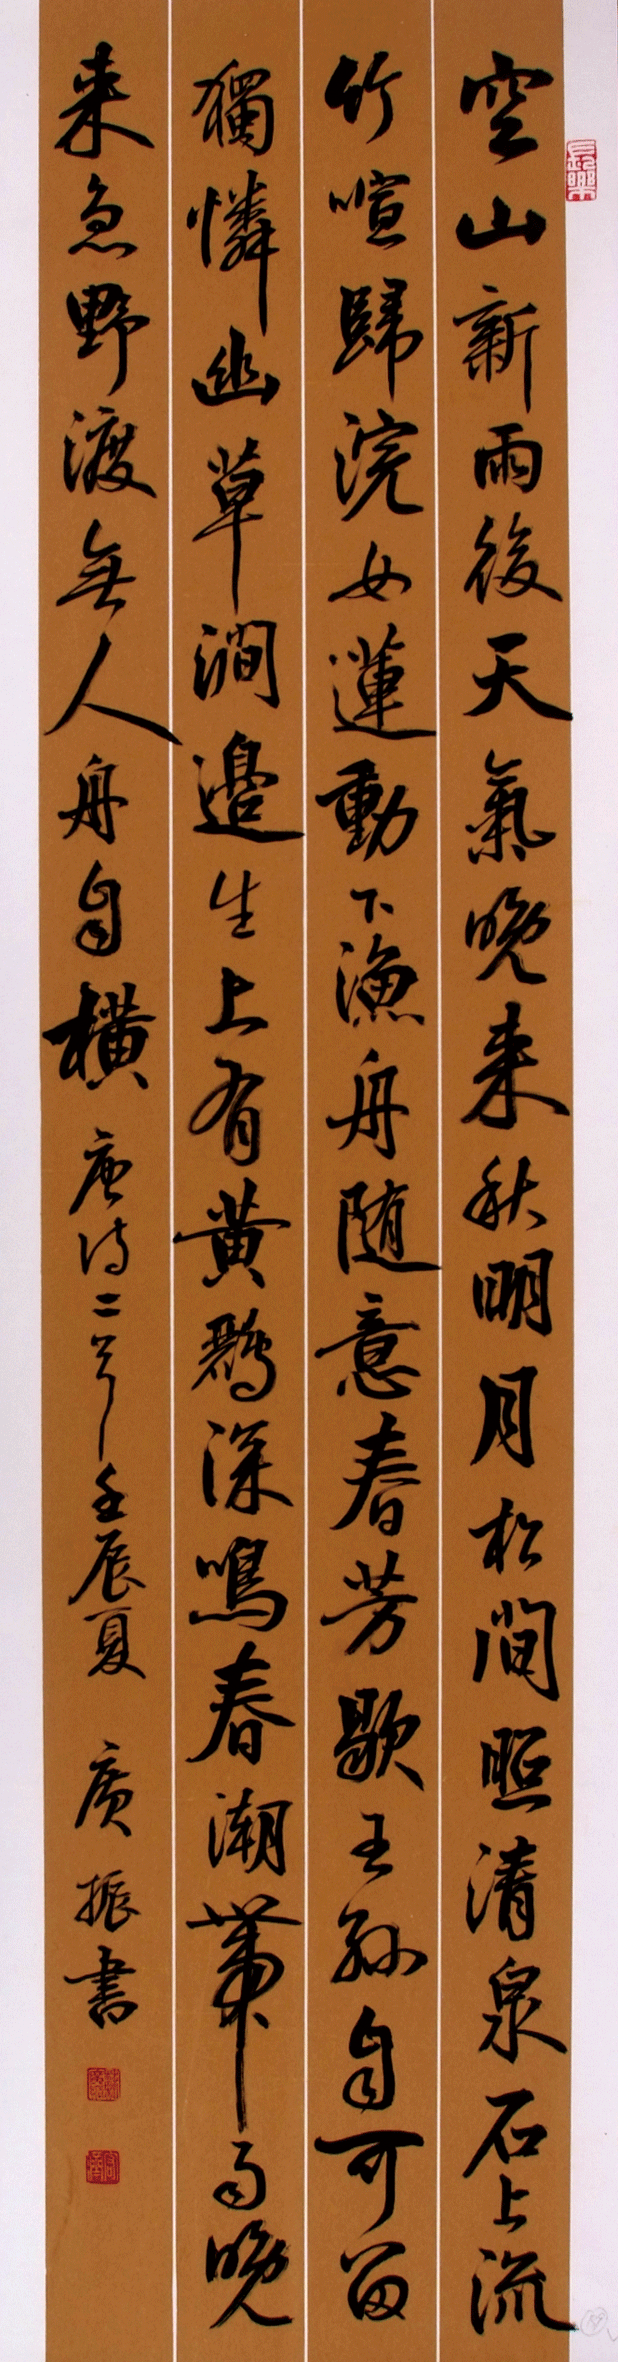 空山新雨後天氣晚来秋明月松間照清泉石上流
竹喧歸浣女蓮動下漁舟随意春芳歇王孫自可留
獨憐幽草澗邊生上有黄鸝深鳴春潮帶雨晚
来急野渡無人舟自横 唐诗二首 壬辰夏 廣振書
長樂